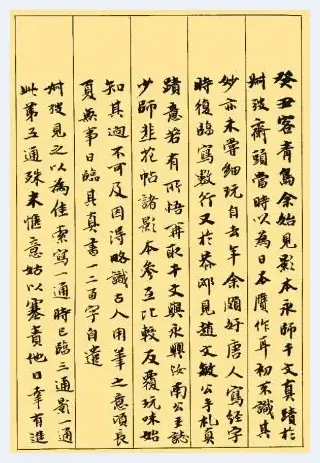 癸丑客青島余始見影本永師千文真蹟於
叔弢齋頭當時以為日本贋作耳初不識其
妙亦未嘗細玩自去年余頗好唐人寫經字
時復臨寫數行又於恭邸見趙文敏公手札真
蹟意若有所悟再取千文與永興汝南公主誌
少師韭花帖諸影本參互比較反覆玩味始
知其迥不可及因得略識古人用筆之意頃長
夏無事日臨其真書一二百字自遣
叔弢見之以為佳索寫一通時已臨三通影一通
此第五通殊未愜意姑以塞責他日幸有進